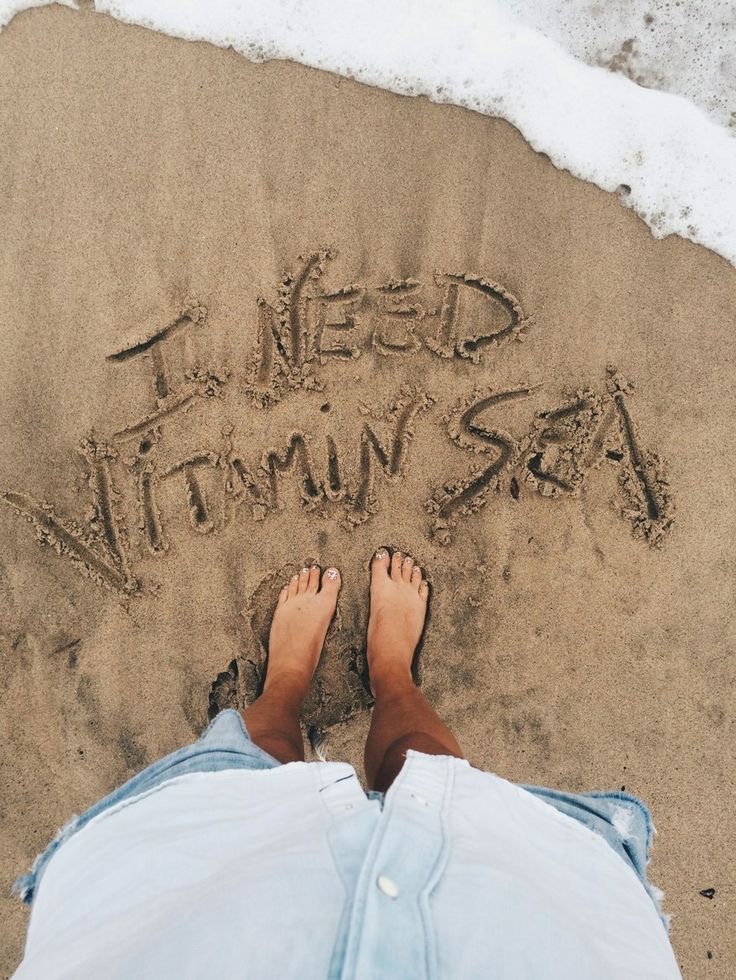 I NEED
VITAMIN SEA